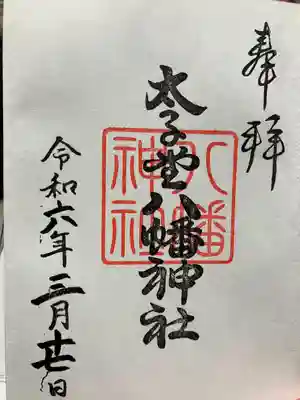 奉拝
太子堂八幡神社
八幡
神社
令和六年三月日